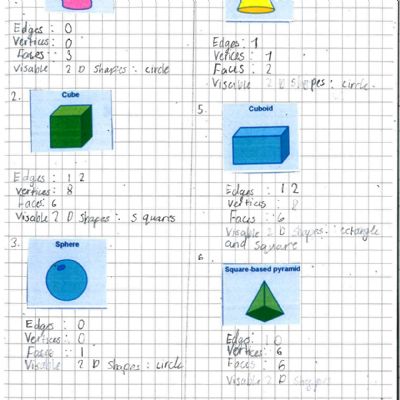 Edges : 0
Vertices: 0
Faces : 3
Visable 2 D shapes : circle
2.
Cube
Edges : 12
Vertices: 8
Faces: 6
Visable 2 D shapes : squares
3.
Sphere
Edges : 0
Vertices : 0
Faces : 1
Visable 2 D shapes : circle
Edges : 1
Vertices : 1
Faces : 2
Visable 2 D shapes : circle
5.
Cuboid
Edges : 12
Vertices : 8
Faces : 6
Visable 2 D shapes : rectangle
and square
6
Square-based pyramid
Edges : 10
Vertices: 6
Faces : 6
Visable 2 D shapes